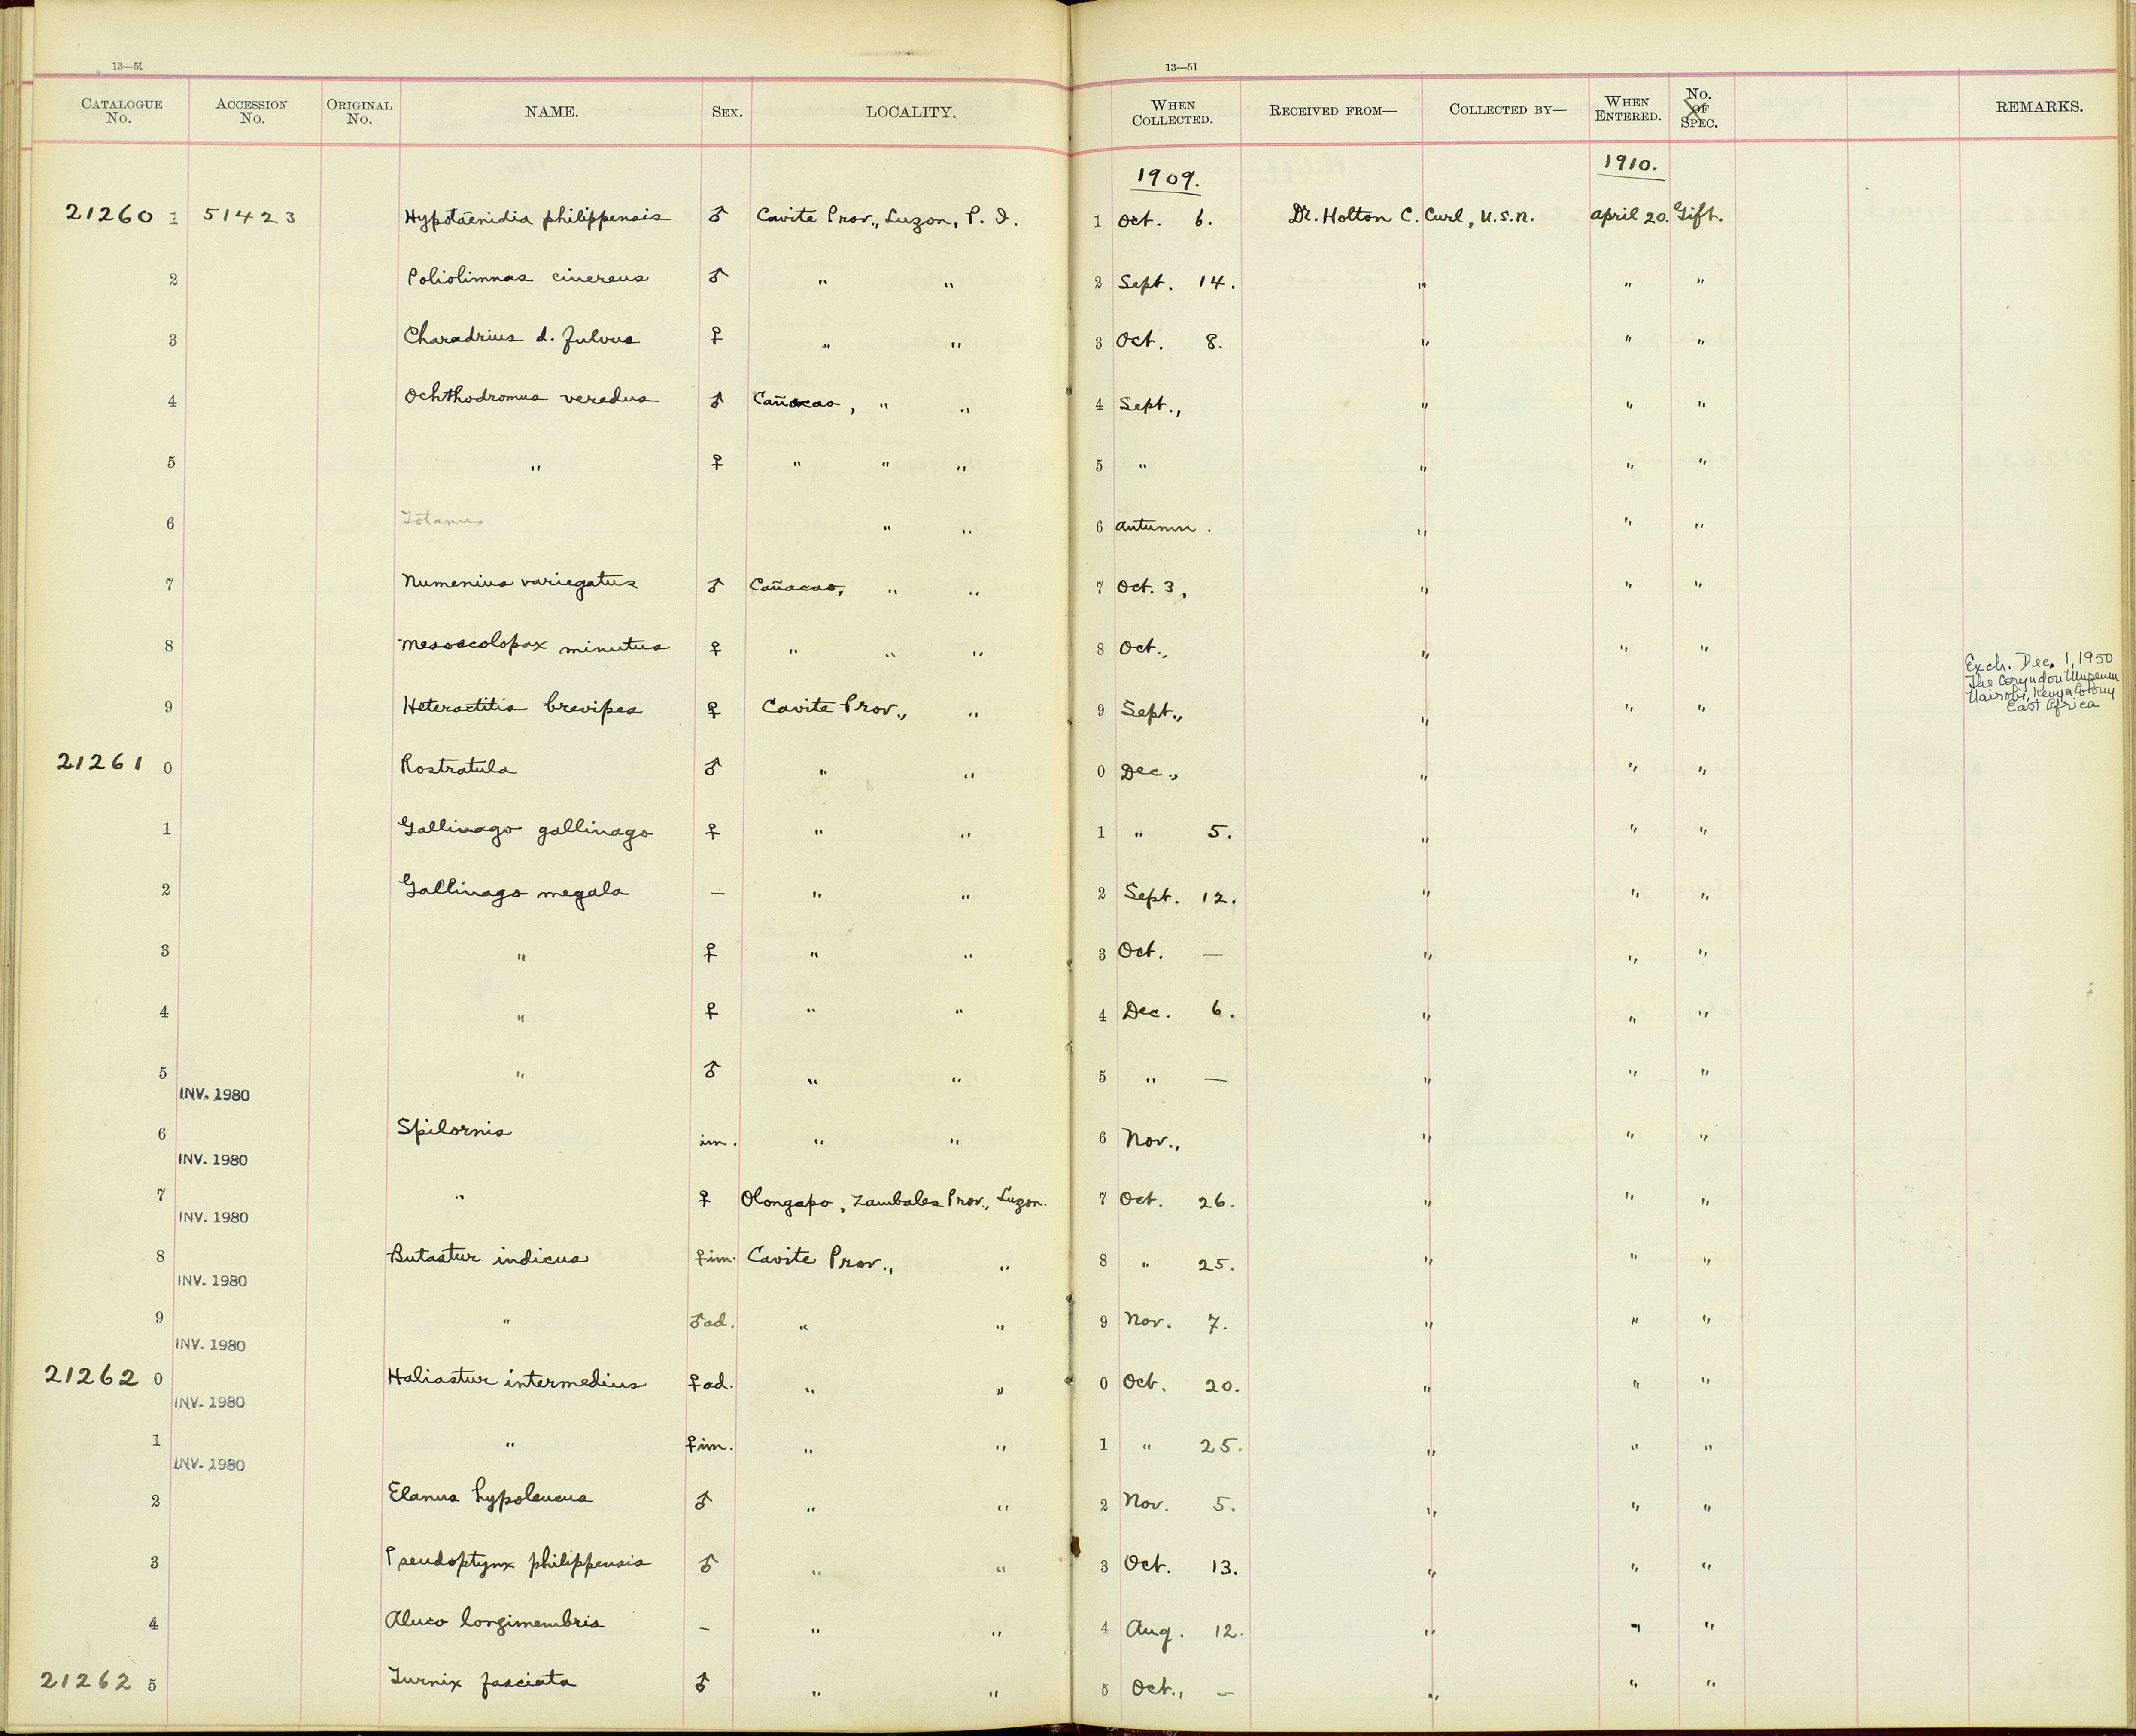 13—51
13—51
CATALOGUE No. ACCESSION No. ORIGINAL No. NAME. SEX. LOCALITY. WHEN COLLECTED. RECEIVED FROM— COLLECTED BY— WHEN ENTERED. No. OF SPEC. REMARKS.
1909. 1910.
21260 1 51423 Hypotaenidia philippensis ♂ Cavite Prov., Luzon, P. I. 1 Oct. 6. Dr. Holton C. Curl, U.S.N. April 20. Gift.
2 Poliolimnas cinereus ♂ " " 2 Sept. 14. " " "
3 Charadrius d. fulvus ♀ " " 3 Oct. 8. " " "
4 Ochthodromus veredus ♂ Cañacao, " " 4 Sept., " " "
5 " ♀ " " " 5 " " " "
6 Totanus " " 6 Autumn. " " "
7 Numenius variegatus ♂ Cañacao, " " 7 Oct. 3, " " "
8 Mesoscolopax minutus ♀ " " " 8 Oct., " " "
Exch. Dec. 1, 1950
The Coryndon Museum
Nairobi, Kenya Colony
East Africa
9 Heteractitis brevipes ♀ Cavite Prov., " 9 Sept., " " "
21261 0 Rostratula ♂ " " 0 Dec., " " "
1 Gallinago gallinago ♀ " " 1 " 5. " " "
2 Gallinago megala — " " 2 Sept. 12. " " "
3 " ♀ " " 3 Oct. — " " "
4 " ♀ " " 4 Dec. 6. " " "
5 " ♂ " " 5 " — " " "
INV. 1980
6 Spilornis im. " " 6 Nov., " " "
INV. 1980
7 " ♀ Olongapo, Zambales Prov., Luzon. 7 Oct. 26. " " "
INV. 1980
8 Butastur indicus ♀im. Cavite Prov., " 8 " 25. " " "
INV. 1980
9 " ♂ad. " " 9 Nov. 7. " " "
INV. 1980
21262 0 Haliastur intermedius ♀ad. " " 0 Oct. 20. " " "
INV. 1980
1 " ♀im. " " 1 " 25. " " "
INV. 1980
2 Elanus hypoleucus ♂ " " 2 Nov. 5. " " "
3 Pseudoptynx philippensis ♂ " " 3 Oct. 13. " " "
4 Aluco longimembris — " " 4 Aug. 12. " " "
21262 5 Turnix fasciata ♂ " " 5 Oct., — " " "